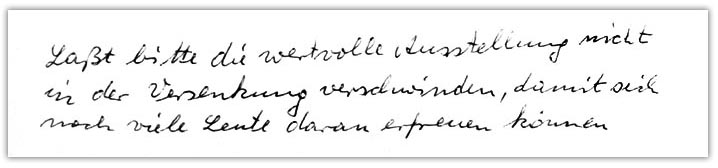 Laßt bitte die wertvolle Ausstellung nicht
in der Versenkung verschwinden, damit sich
noch viele Leute daran erfreuen können